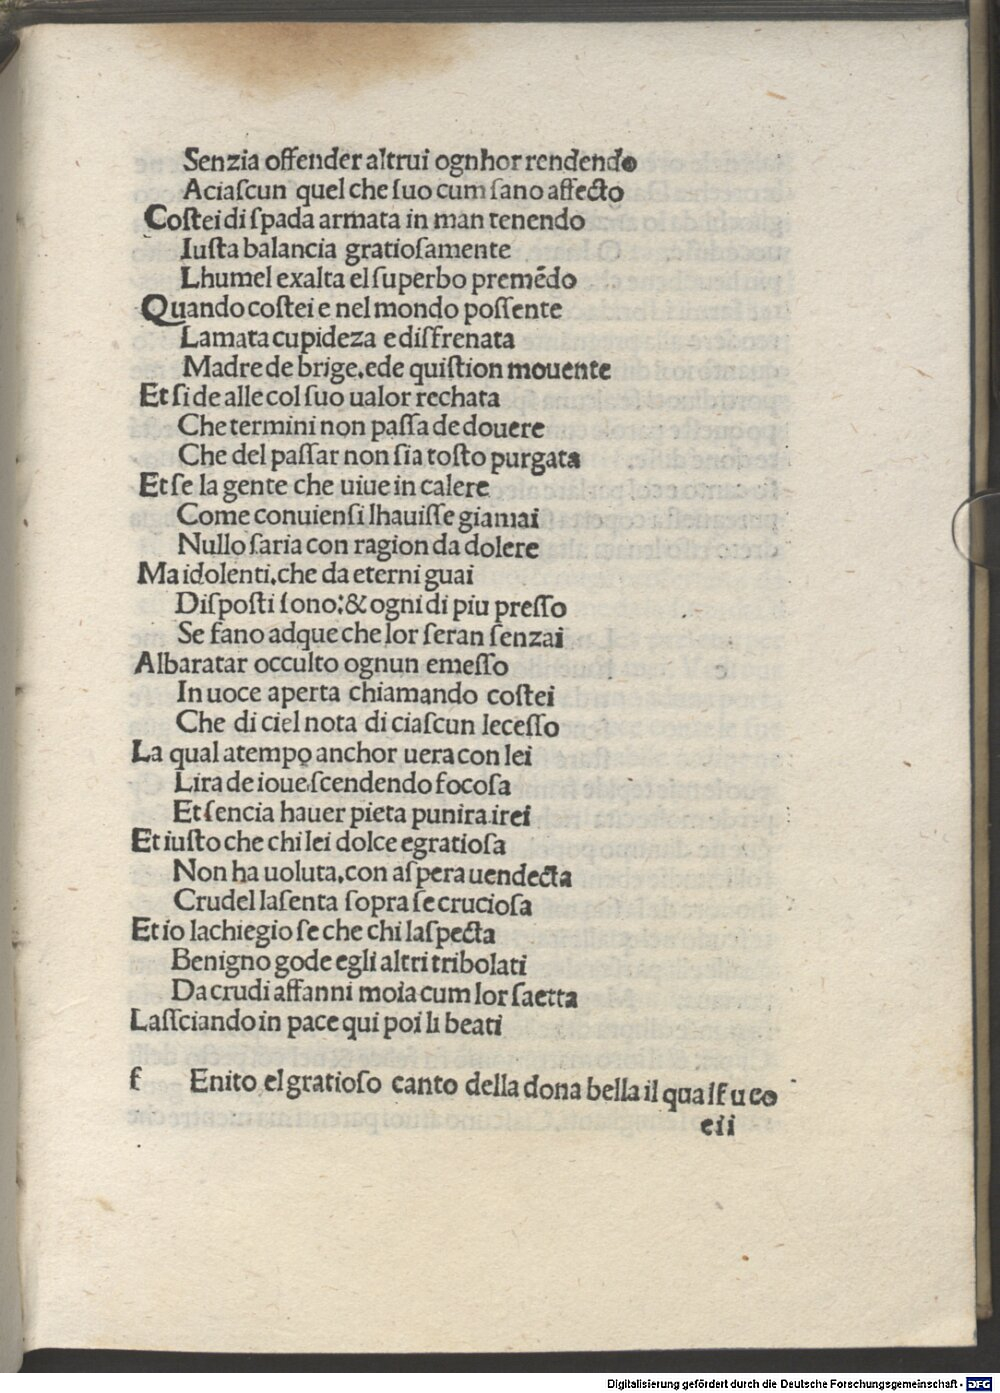 Senzia offender altrui ognhor rendendo
Aciaſcun quel che ſuo cum ſano affecto
Coſtei di ſpada armata in man tenendo
Iuſta balancia gratioſamente
Lhumel exalta el ſuperbo premēdo
Quando coſtei e nel mondo poſſente
Lamata cupideza e diſfrenata
Madre de brige.ede quiſtion mouente
Et ſi de alle col ſuo ualor rechata
Che termini non paſſa de douere
Che del paſſar non ſia toſto purgata
Et ſe la gente che uiue in calere
Come conuienſi lhauiſſe giamai
Nullo ſaria con ragion da dolere
Ma idolenti.che da eterni guai
Diſpoſti ſono:& ogni di piu preſſo
Se fano adque che lor ſeran ſenzai
Albaratar occulto ognun emeſſo
In uoce aperta chiamando coſtei
Che di ciel nota di ciaſcun leceſſo
La qual atempo anchor uera con lei
Lira de ioue ſcendendo focoſa
Et ſencia hauer pieta punira irei
Et iuſto che chi lei dolce egratioſa
Non ha uoluta.con aſpera uendecta
Crudel laſenta ſopra ſe crucioſa
Et io lachiegio ſe che chi laſpecta
Benigno gode egli altri tribolati
Da crudi affanni moia cum lor ſaetta
Laſſciando in pace qui poi li beati
f Enito el gratioſo canto della dona bella il qual fu co
eii
Digitalisierung gefördert durch die Deutsche Forschungsgemeinschaft - DFG